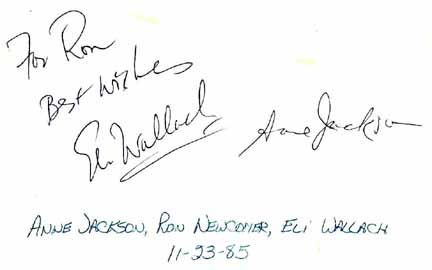 For Ron
Best Wishes
Eli Wallach
Anne Jackson
ANNE JACKSON, RON NEWCOMER, ELI WALLACH
11-23-85